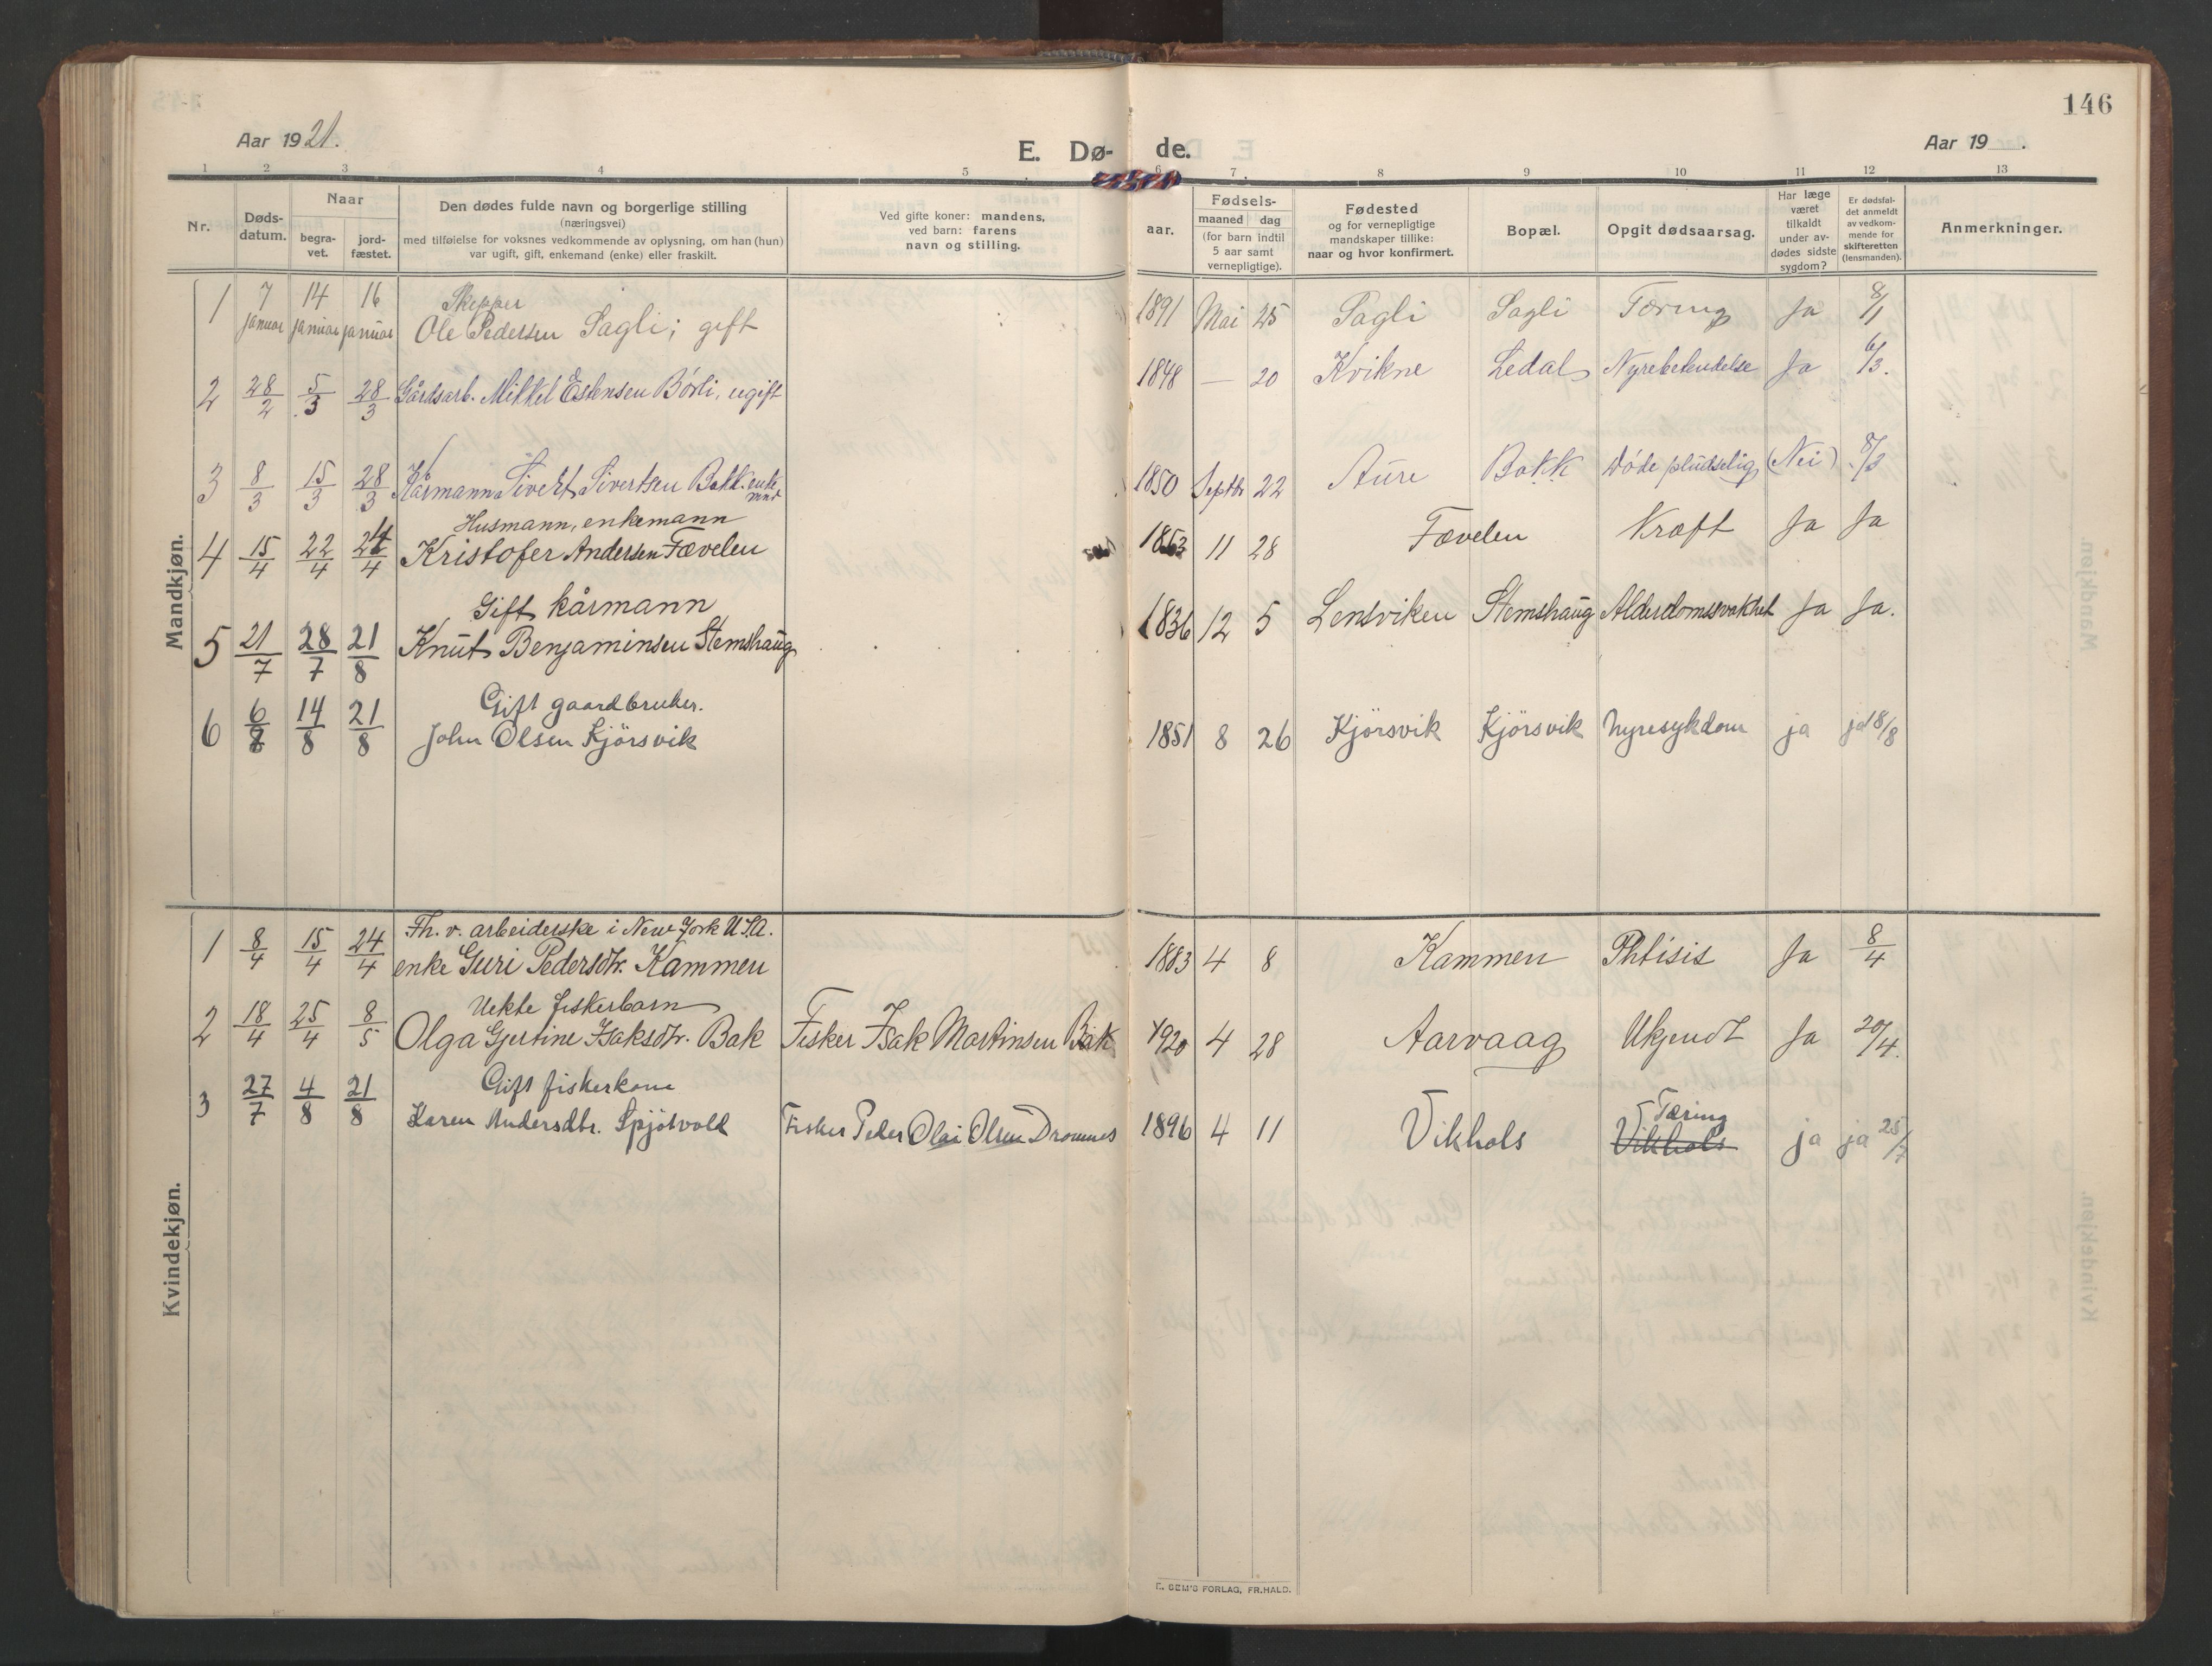 146
Aar 1921.
E. Dø-
de.
Aar 19 .
1 2 3 4 5 6 7 8 9 10 11 12 13
Nr.
Døds-
datum.
Naar
begra-
vet.
jord-
fæstet.
Den dødes fulde navn og borgerlige stilling
(næringsvei)
med tilføielse for voksnes vedkommende av oplysning, om han (hun)
var ugift, gift, enkemand (enke) eller fraskilt.
Ved gifte koner: mandens,
ved barn: farens
navn og stilling.
Fødsels-
aar.
maaned dag
(for barn indtil
5 aar samt
vernepligtige).
Fødested
og for vernepligtige
mandskaper tillike:
naar og hvor konfirmert.
Bopæl.
Opgit dødsaarsag.
Har læge
været
tilkaldt
under av-
dødes sidste
sygdom?
Er dødsfal-
det anmeldt
av vedkom-
mende for
skifteretten
(lensmanden).
Anmerkninger.
Mandkjøn.
Skipper
1 7 januar 14 januar 16 januar Ole Pedersen Sagli; gift 1891 Mai 25 Sagli Sagli Tæring Ja 8/1
2 28/2 5/3 28/3 Gårdsarb. Mikkel Estensen Börli, ugift 1848 — 20 Kvikne Ledal Nyrebetendelse Ja 6/3.
3 8/3 15/3 28/3 Kårmann Sivert Sivertsen Bakk. enke
mnd 1850 Septbr 22 Aure Bakk Döde pludselig (Nei) 8/3
Husmann, enkemann
4 15/4 22/4 24/4 Kristofer Andersen Fævelen 1863 11 28 Fævelen Kræft Ja Ja
Gift kårmann
5 21/7 28/7 21/8 Knut Benjaminsen Stemshaug 1836 12 5 Lensviken Stemshaug Alderdomssvakhet Ja Ja.
Gift gaardbruker.
6 6/8 14/8 21/8 John Olsen Kjörsvik 1851 8 26 Kjörsvik Kjörsvik Nyresykdom ja ja 18/8
Kvindekjøn.
Fh. v. arbeiderske i New York U.S.A.
1 8/4 15/4 24/4 enke Guri Pedersdtr. Kammen 1883 4 8 Kammen Phtisis Ja 8/4
Uekte fiskerbarn
2 18/4 25/4 8/5 Olga Gjertine Isaksdtr. Bak Fisker Isak Martinsen Bak 1920 4 28 Aarvaag Ukjendt Ja 20/4.
Gift fiskerkone Tæring
3 27/7 4/8 21/8 Karen Andersdtr. Spjötvold Fisker Peder Olai Olsen Dromnes 1896 4 11 Vikhals Vikhals ja ja 25/7
E. SEM'S FORLAG, FR.HALD.